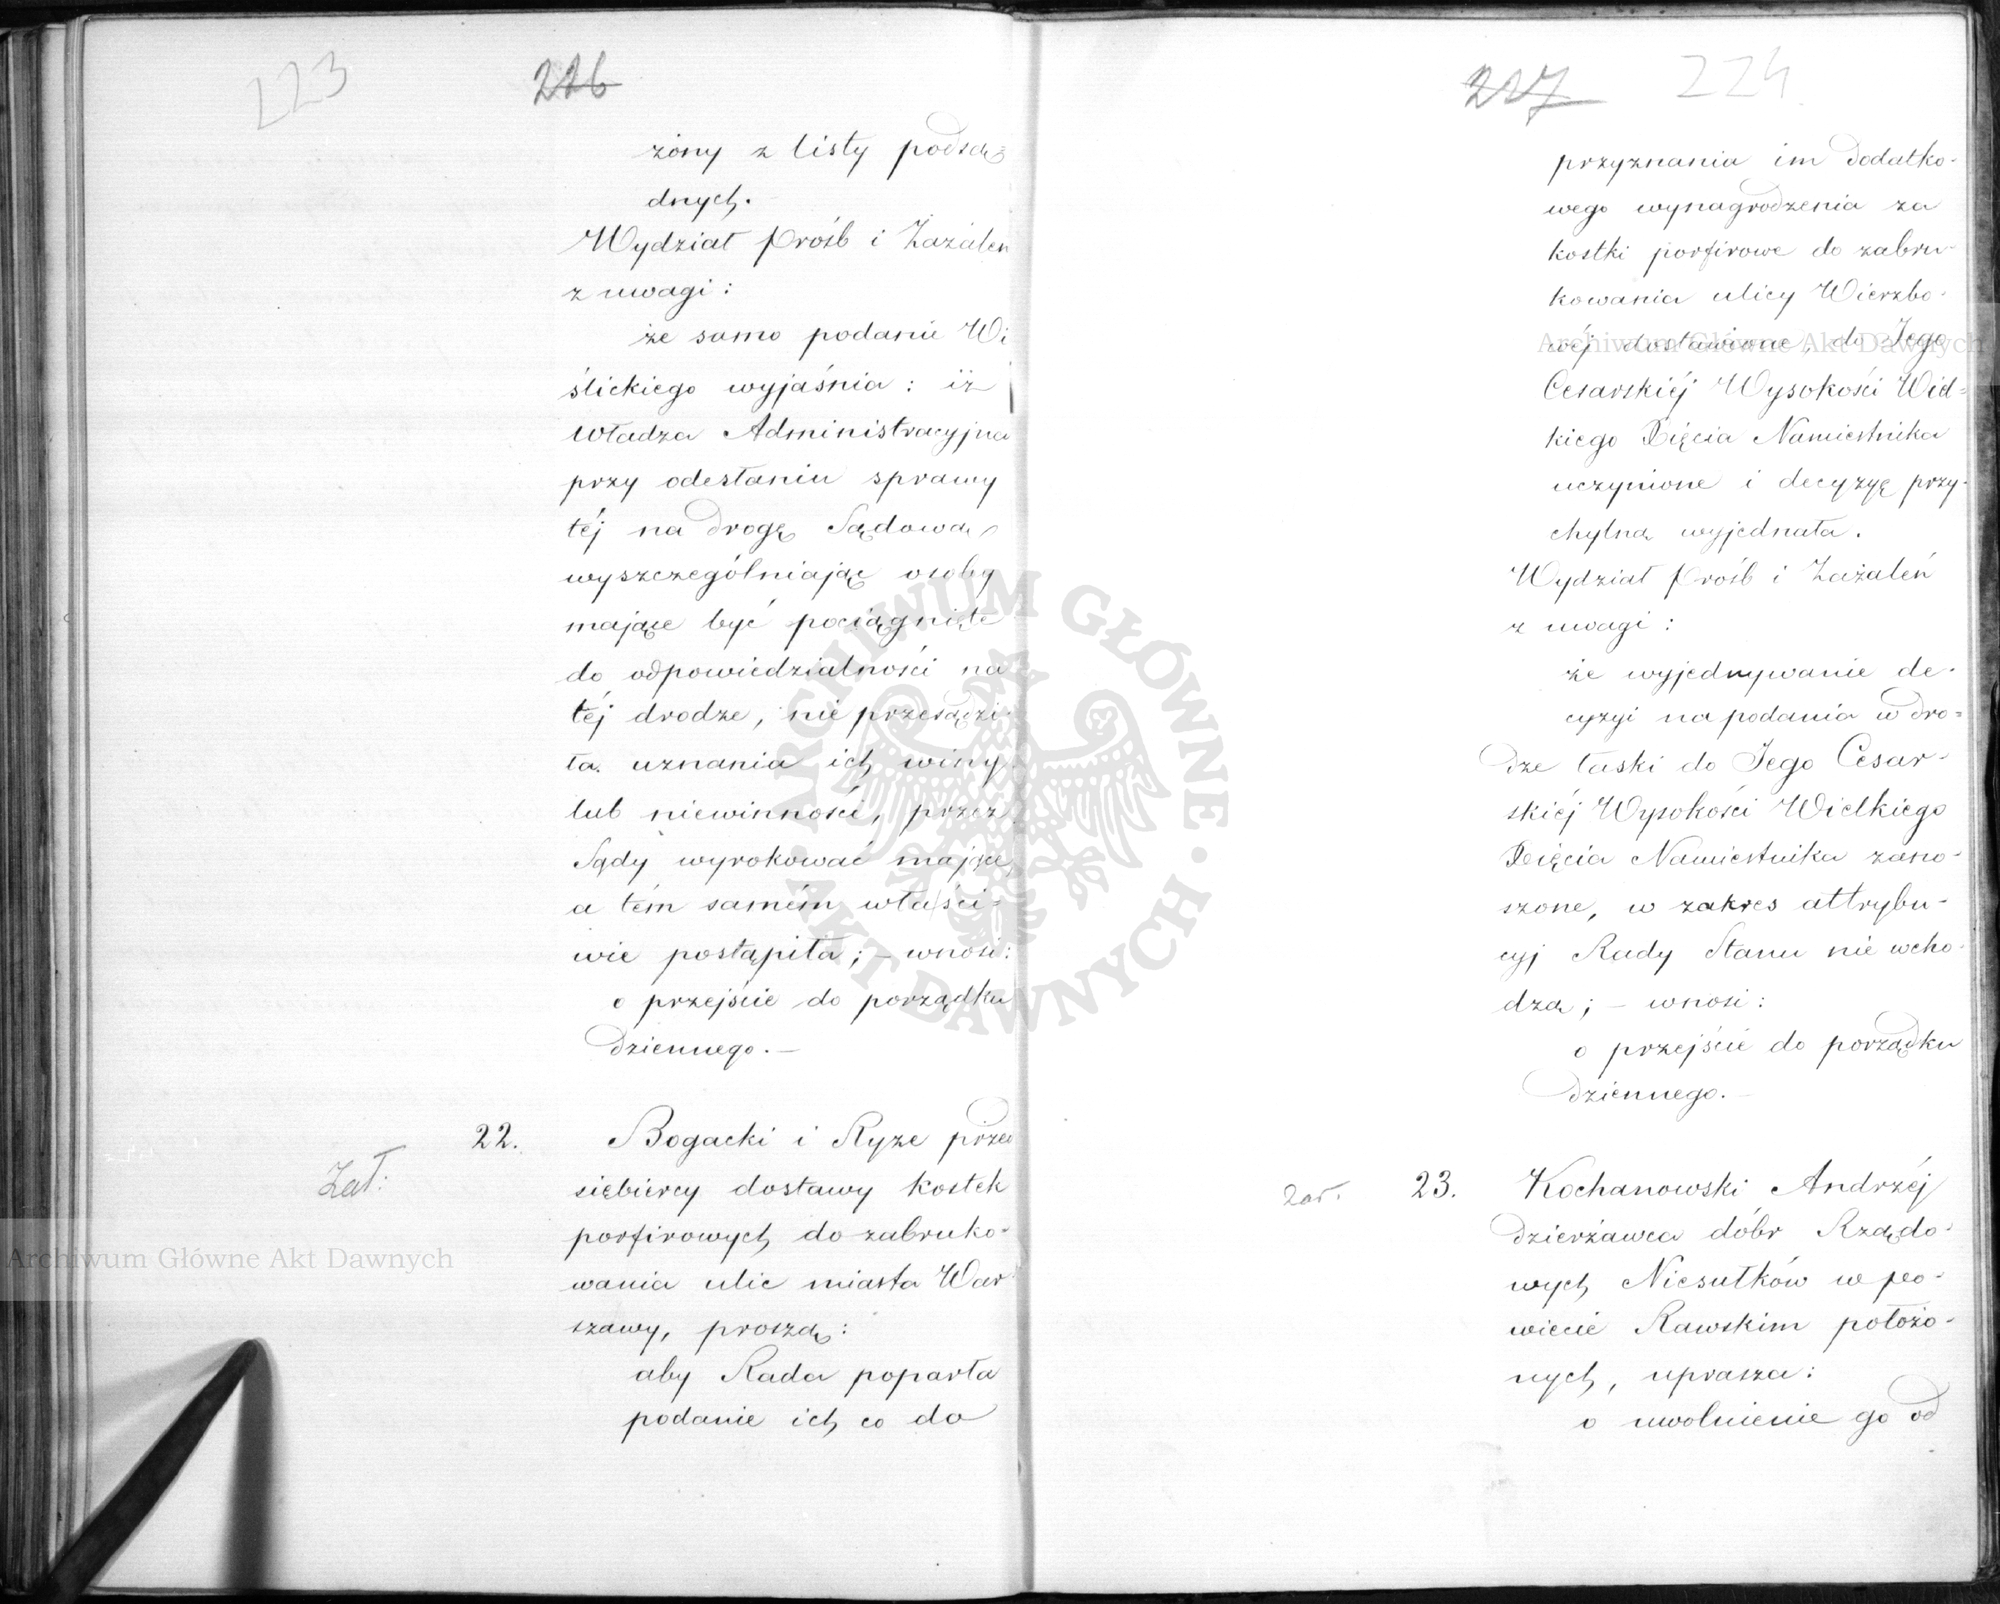 223
226
żony z listy podsą-
dnych.
Wydział Próśb i Zażaleń
z uwagi:
że samo podanie Wi
ślickiego wyjaśnia: iż
Władza Administracyjna
przy odesłaniu sprawy
téj na drogę Sądową,
wyszczególniając osoby
mające być pociągnięte
do odpowiedzialności na
téj drodze, nie przesądzi-
ła uznania ich winy
lub niewinności, przez
Sądy wyrokować mające,
a tém samém właści-
wie postąpiła; – wnosi:
o przejście do porządku
dziennego. –
Zał:
22. Bogacki i Ryze przed
siębiercy dostawy kostek
porfirowych do zabruko-
wania ulic miasta War
szawy, proszą:
aby Rada poparła
podanie ich co do
227
224
przyznania im dodatko-
wego wynagrodzenia za
kostki porfirowe do zabru-
kowania ulicy Wierzbo-
wéj dostawione, do Jego
Cesarskiéj Wysokości Wiel-
kiego Xięcia Namiestnika
uczynione i decyzyę przy-
chylną wyjednała.
Wydział Próśb i Zażaleń
z uwagi:
że wyjednywanie de-
cyzyi na podania w dro-
dze łaski do Jego Cesar-
skiéj Wysokości Wielkiego
Xięcia Namiestnika zano-
szone, w zakres attrybu-
cyj Rady Stanu nie wcho-
dzą; – wnosi:
o przejście do porządku
dziennego. –
Zał.
23. Kochanowski Andrzéj
dzierżawca dóbr Rządo-
wych Niesułków w po-
wiecie Rawskim położo-
nych, uprasza:
o uwolnienie go od
Archiwum Główne Akt Dawnych
Archiwum Główne Akt Dawnych
ARCHIWUM GŁÓWNE · AKT DAWNYCH ·